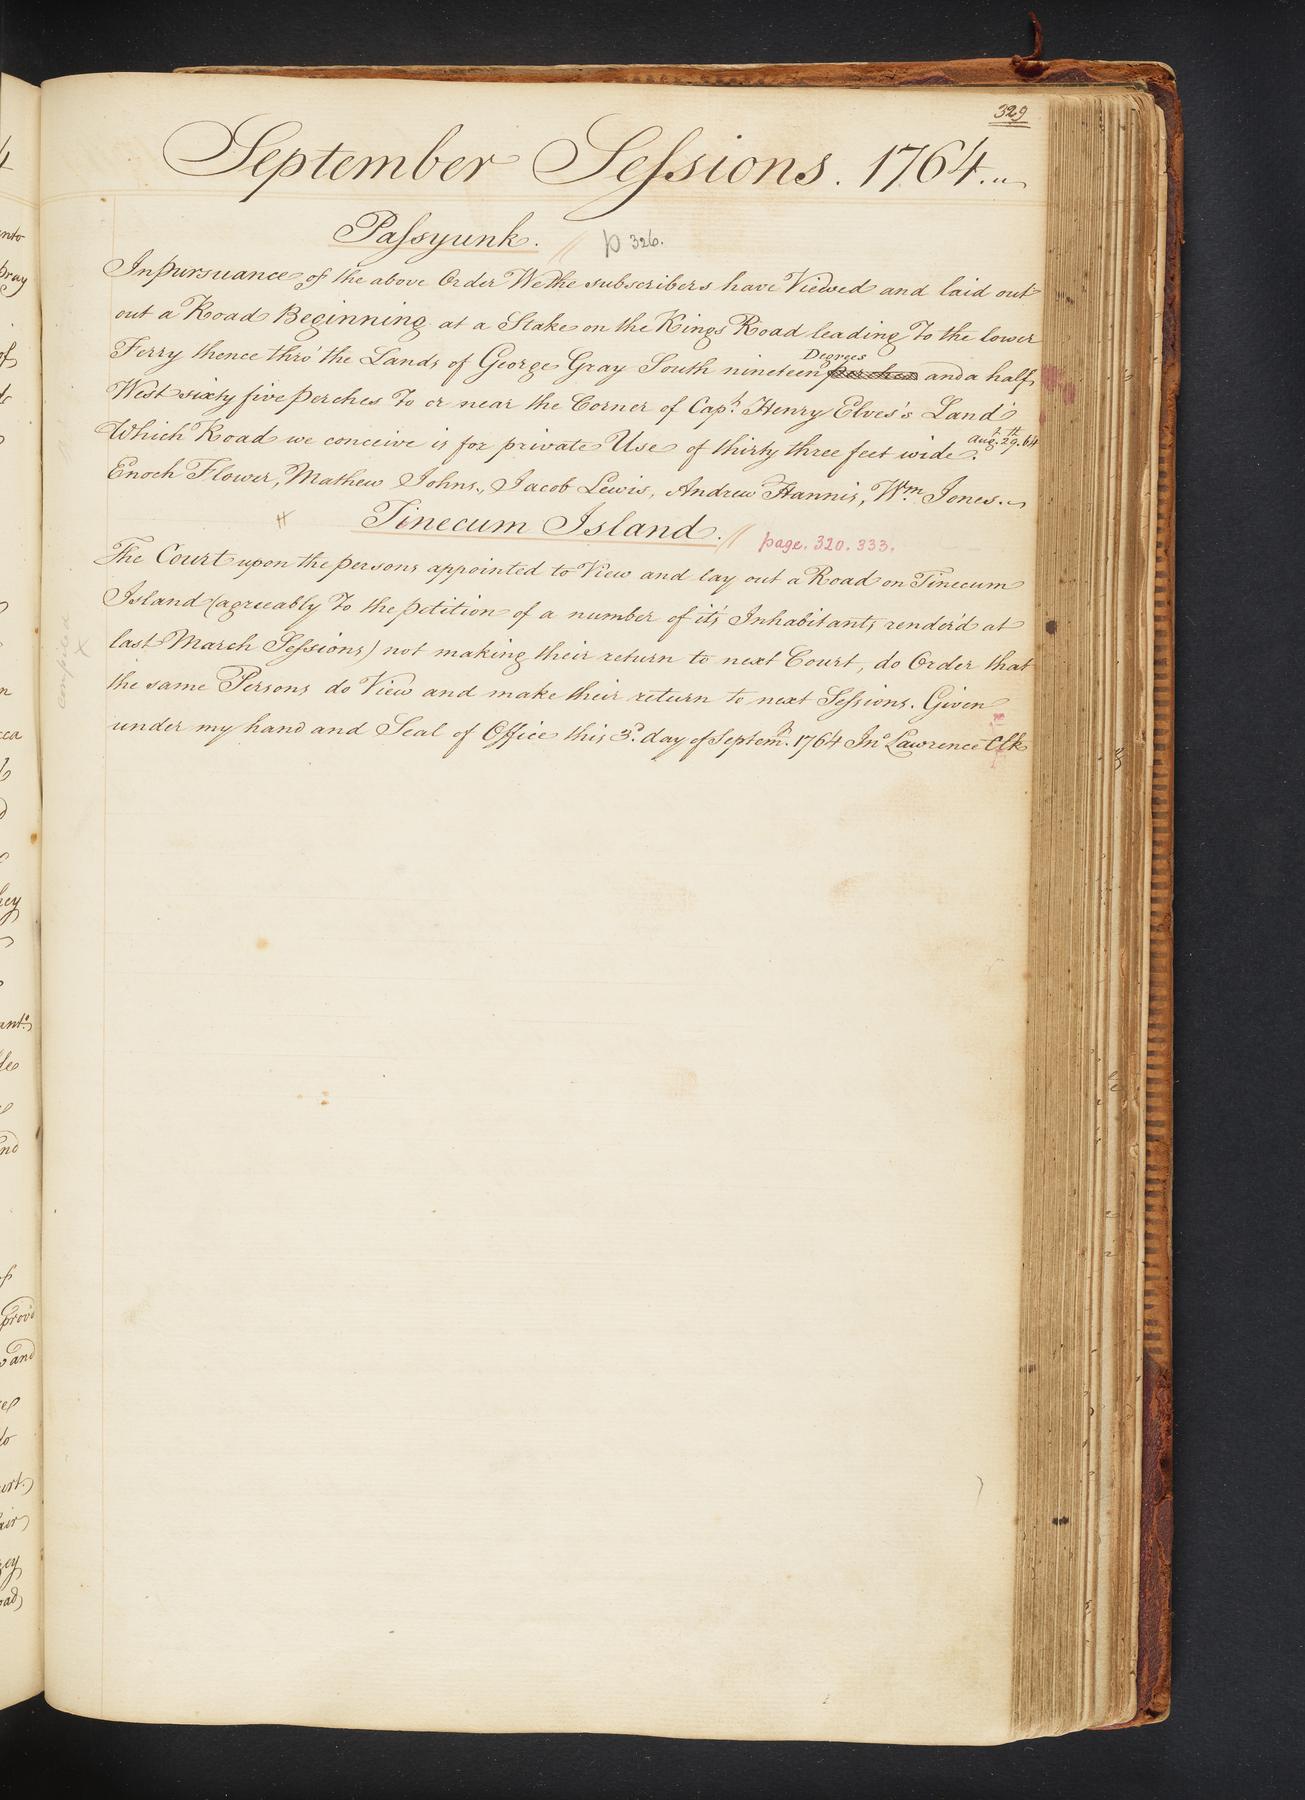 329
September Sessions. 1764.
Passyunk. // p 326.
In pursuance of the above Order We the subscribers have Viewed and laid out
out a Road Beginning at a Stake on the Kings Road leading To the lower
Ferry thence thro' the Lands of George Gray South nineteen perches Degrees and a half
West sixty five perches To or near the Corner of Capt. Henry Elves's Land
Which Road we conceive is for private Use of thirty three feet wide. Augt. 29th. 64
Enoch Flower, Mathew Johns, Jacob Lewis, Andrew Hannis, Wm. Jones.
Tinecum Island. // page. 320. 333.
The Court upon the persons appointed to View and lay out a Road on Tinecum
Island (agreeably To the petition of a number of it's Inhabitants render'd at
last March Sessions) not making their return to next Court, do Order that
the same Persons do View and make their return to next Sessions. Given
under my hand and Seal of Office this 3d. day of Septemr. 1764 Jno Lawrence Clk